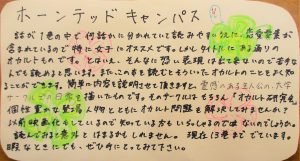 ホーンテッドキャンパス
話が1巻の中で何話かに分かれていて読みやすいうえに、恋愛要素が
含まれているので特に女子にオススメです。しかしタイトルにある通りの
オカルトものです。とはいえ、そんなに恐い表現は出て来ないので苦手な
人でも読めると思います。またこの本を読むとそういったオカルトのことをよく知る
ことができます。簡単に内容を説明させて頂きますと、霊感のある主人公の、大学
サークルでの日常を描いたものです。そのサークルにはもちろん「オカルト研究会」
個性豊かな愛される人物とともにオカルト問題を解決してみませんか？
以前映画化もしているので知っている方もいらっしゃるのではないのでしょうか。
読んでみると意外とはまるかもしれません。現在13巻まででています。
暇なときにでも、ぜひ手にとってみて下さい。